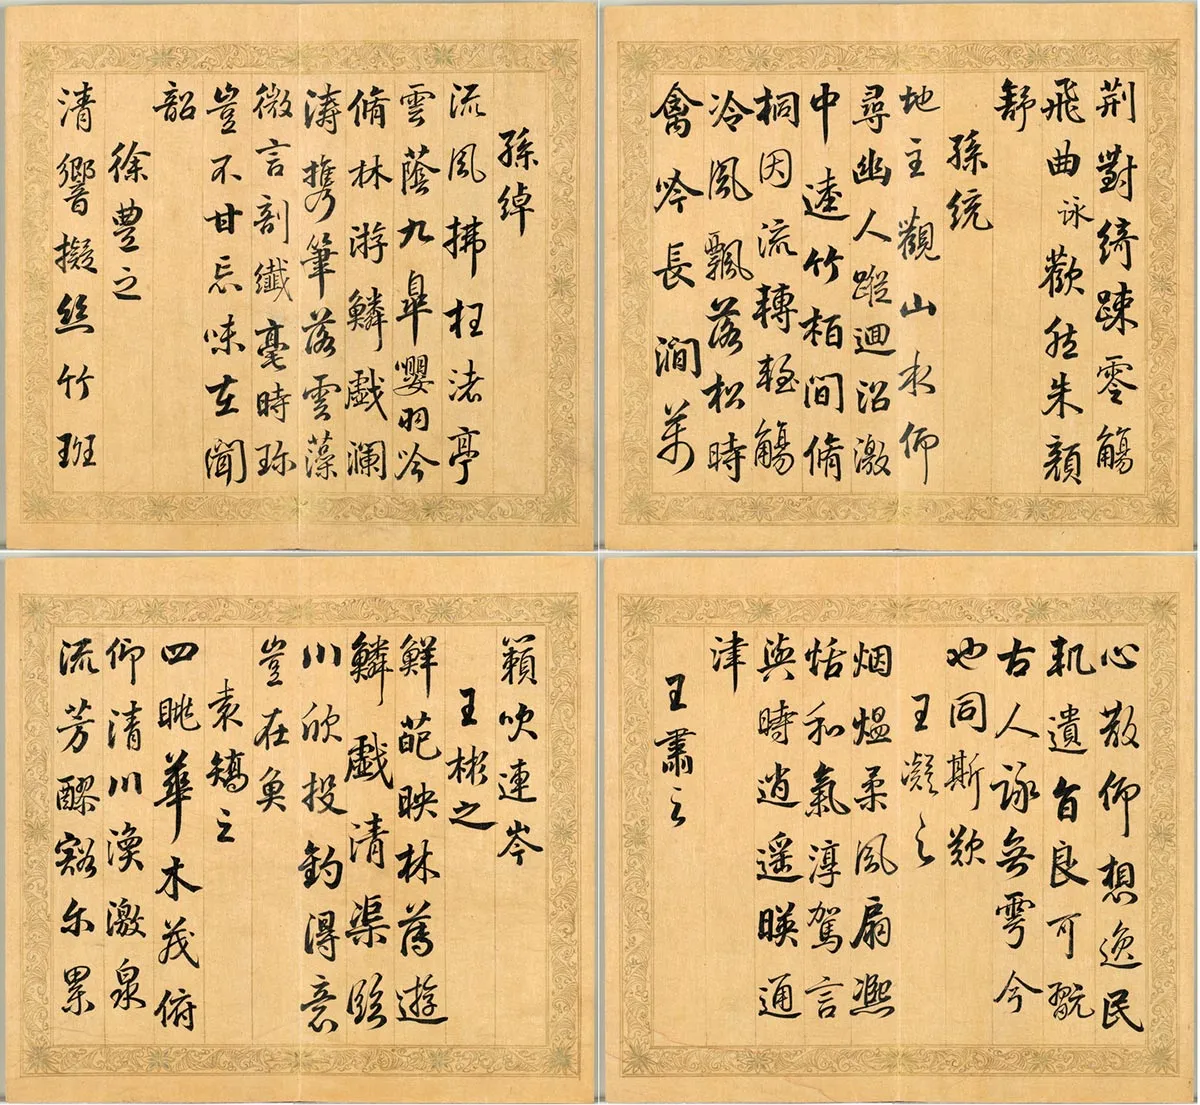 孫綽
流風拂枉渚亭
雲蔭九皐嚶羽吟
脩林游鱗戲瀾
濤攜筆落雲藻
微言剖纖毫時珍
豈不甘忘味在聞
韶
徐豊之
清響擬絲竹班
荆對綺疎零觴
飛曲詠歡然朱顏
舒
孫統
地主觀山水仰
尋幽人蹤迴沼激
中逵竹栢間脩
桐因流轉輕觴
冷風飄落松時
禽吟長澗萬
籟吹連岑
王彬之
鮮葩映林薄遊
鱗戲清渠臨
川欣投釣得意
豈在魚
袁矯之
四眺華木茂俯
仰清川渙激泉
流芳醪豁尔累
心散仰想逸民
軌遺音良可翫
古人詠舞雩今
也同斯歎
王凝之
烟煴柔風扇熙
恬和氣淳駕言
與時逍遥暎通
津
王肅之